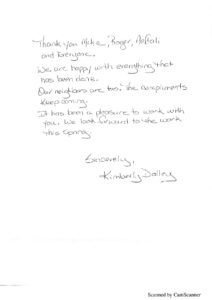 Thank you Mike, Roger, Melfredi,
and Everyone,
We are happy with everything that
has been done.
Our neighbors are two! The compliments
keep coming.
It has been a pleasure to work with
you. We look forward to the work
this Spring.
Sincerely,
Kimberly Dailey
Scanned by CamScanner